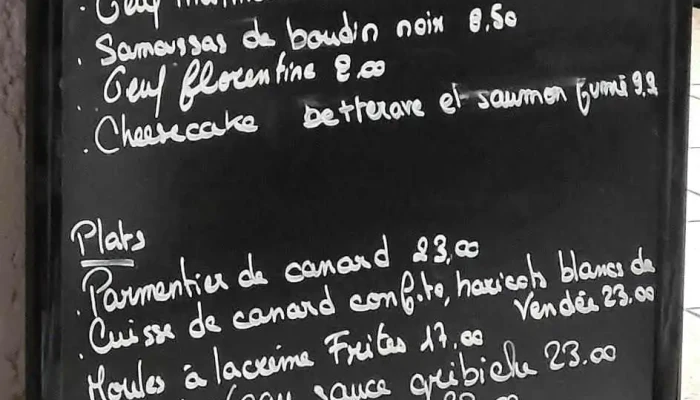 · Oeuf
· Samoussas de boudin noir 8.50
· Oeuf florentine 8.00
· Cheesecake betterave et saumon fumé 9,2
Plats
· Parmentier de canard 23,00
· Cuisse de canard confite, haricots blancs de
Vendée 23.00
Moules à la crème Frites 17.00
sauce gribiche 23.00